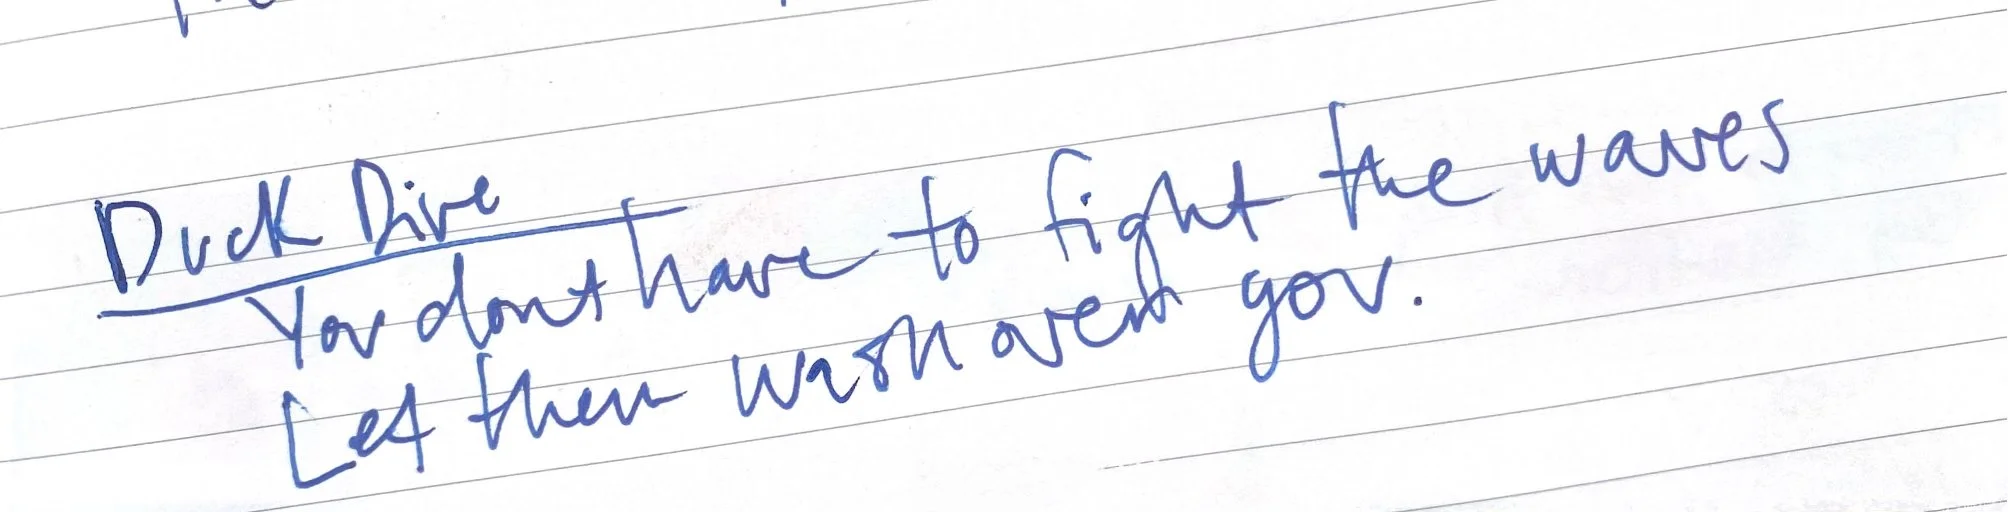 Duck Dive
You dont have to fight the waves
Let them wash over you.